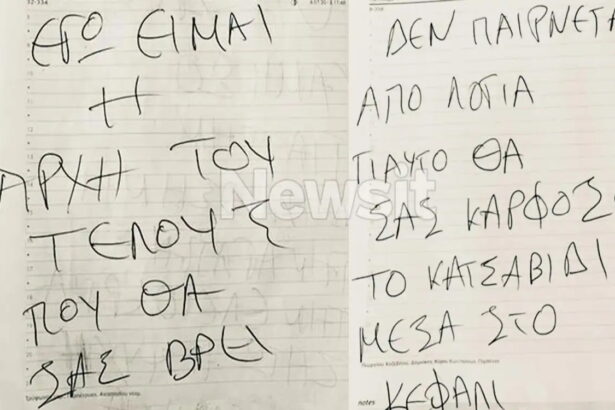 32-334
ΕΓΩ ΕΙΜΑΙ
Η
ΑΡΧΗ ΤΟΥ
ΤΕΛΟΥΣ
ΠΟΥ ΘΑ
ΣΑΣ ΒΡΕΙ
ΔΕΝ ΠΑΙΡΝΕΤΑ
ΑΠΟ ΛΟΓΙΑ
ΓΙΑΥΤΟ ΘΑ
ΣΑΣ ΚΑΡΦΟΣ
ΤΟ ΚΑΤΣΑΒΙΔΙ
ΜΕΣΑ ΣΤΟ
notes
ΚΕΦΑΛΙ
Newsit